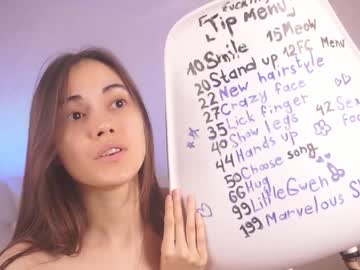 Tip Menu
10 Smile 15 Meow
20 Stand up 12 FC Menu
22 New hairstyle
27 Crazy face
35 Lick finger
40 Show legs 42
44 Hands up
50 Choose song
66 Hug
99 Little Gweh
199 Marvelous